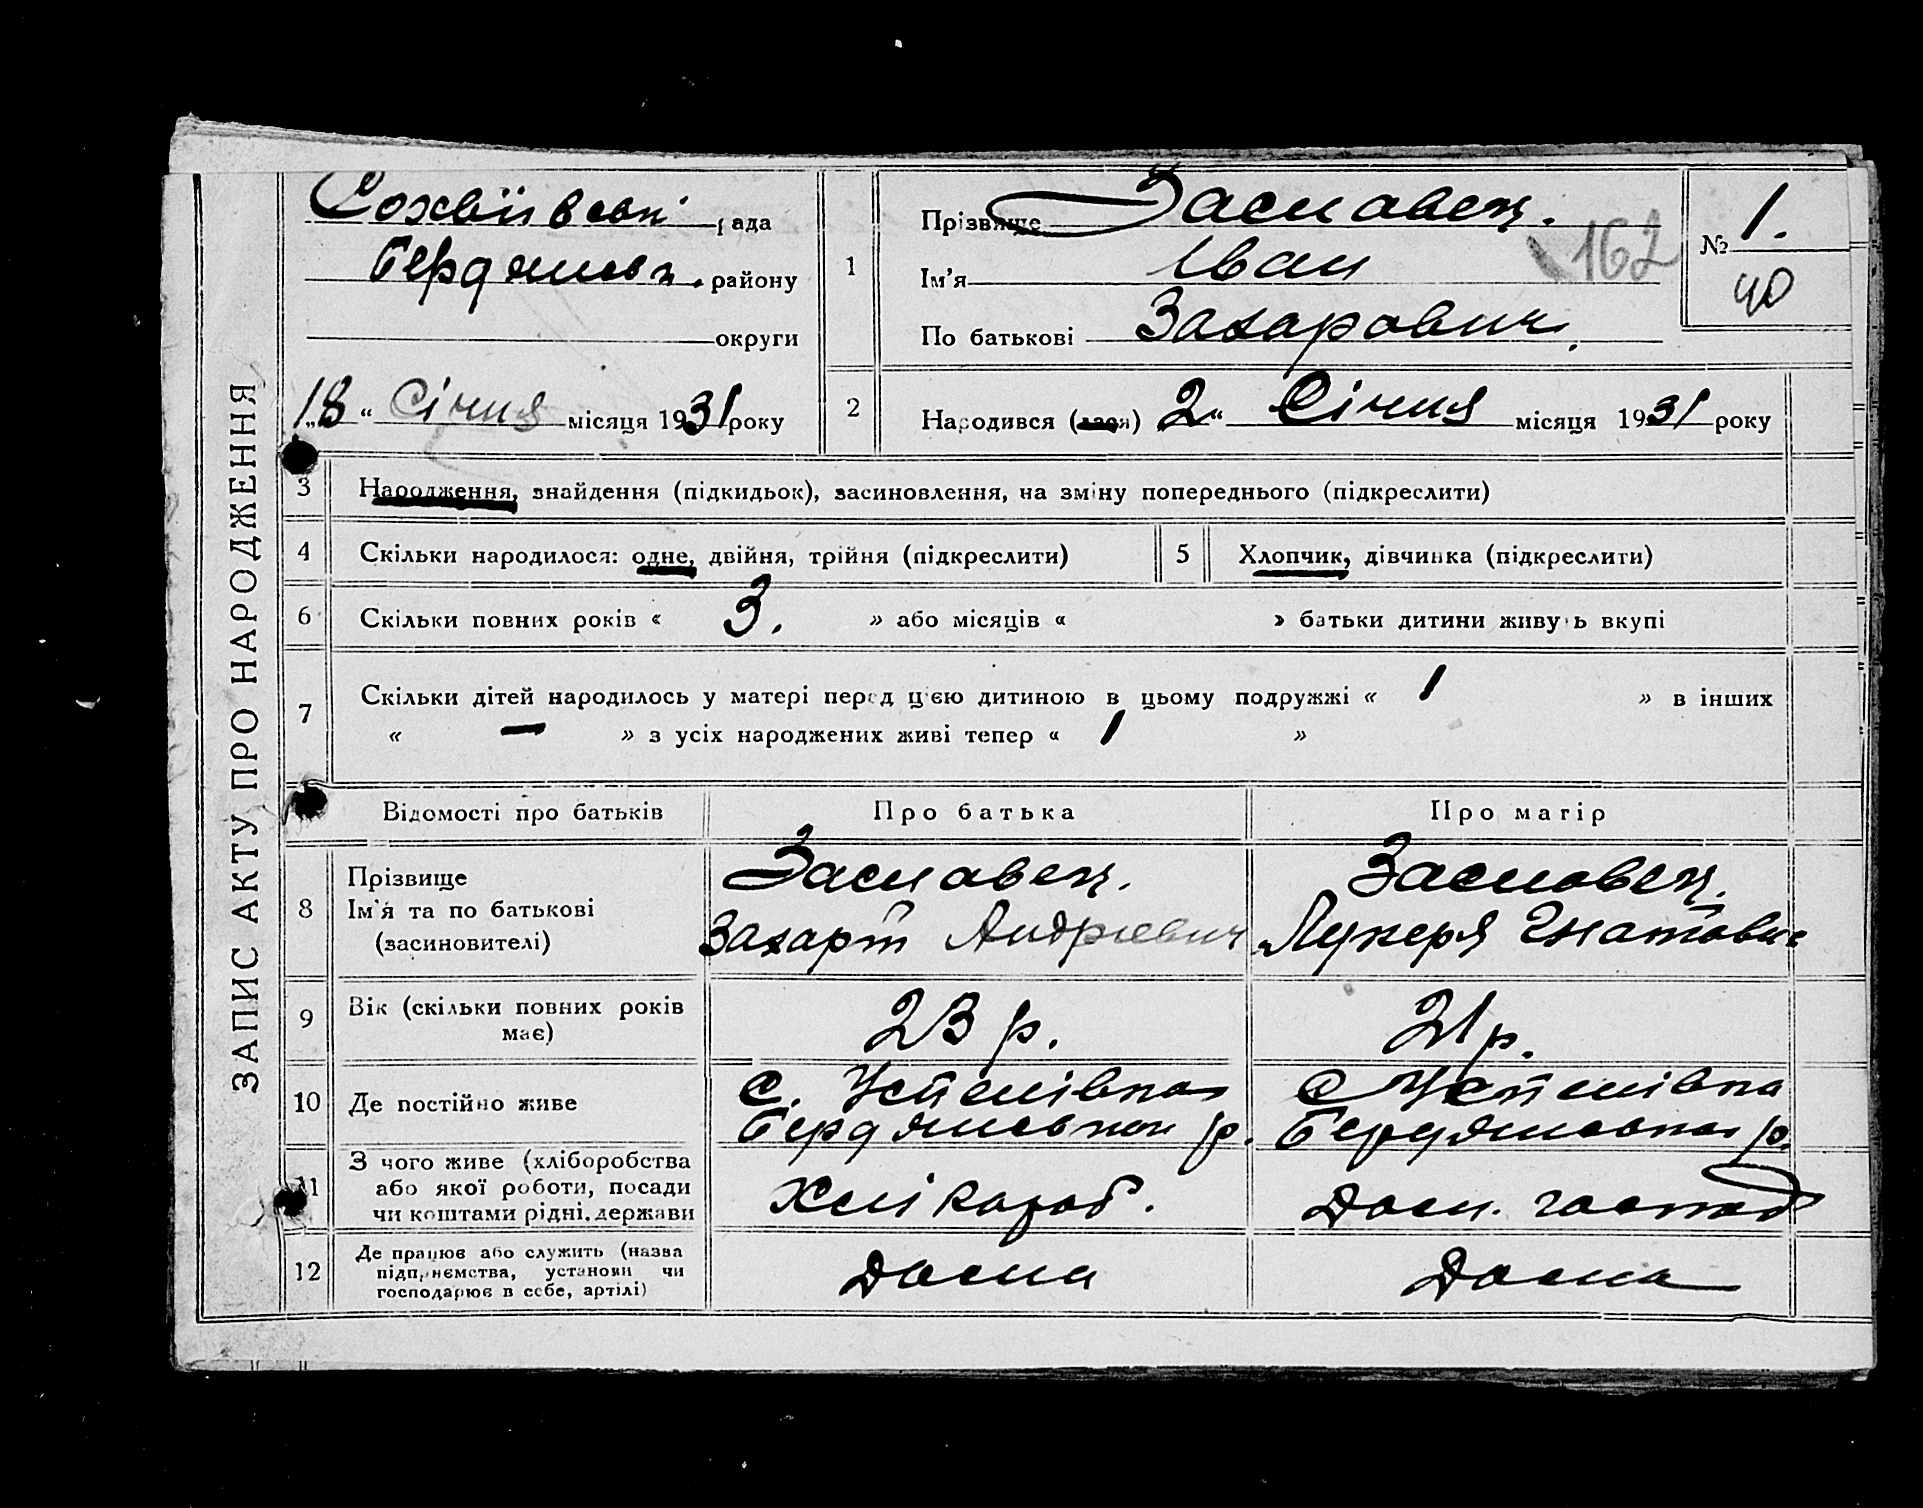 ЗАПИС АКТУ ПРО НАРОДЖЕННЯ
Софиївськ рада
Бердянськ. району
округи
„18“ Січня місяця 1931 року
1
Прізвище Заславец.
Ім'я Іван
По батькові Захарович.
162
№ 1.
40
2
Народився (лася) „2“ Січня місяця 1931 року
3 Народження, знайдення (підкидьок), засиновлення, на зміну попереднього (підкреслити)
4 Скільки народилося: одне, двійня, трійня (підкреслити)
5 Хлопчик, дівчинка (підкреслити)
6 Скільки повних років « 3. » або місяців « » батьки дитини живуть вкупі
7 Скільки дітей народилось у матері перед цією дитиною в цьому подружжі « 1 » в інших
« — » з усіх народжених живі тепер « 1 »
Відомості про батьків Про батька Про матір
8 Прізвище
Ім'я та по батькові
(засиновителі)
Заславец.
Захарт Андрієвич
Засловец.
Лукеря Гнатовн
9 Вік (скільки повних років
має)
23 р.
21 р.
10 Де постійно живе
с. Успенівка
Бердянськои р.
с Успенівка
Бердянська р.
11 З чого живе (хліборобства
або якої роботи, посади
чи коштами рідні, держави
Хлі короб.
Дом. господ
12 Де працює або служить (назва
підприємства, установи чи
господарює в себе, артілі)
Дома
Дома